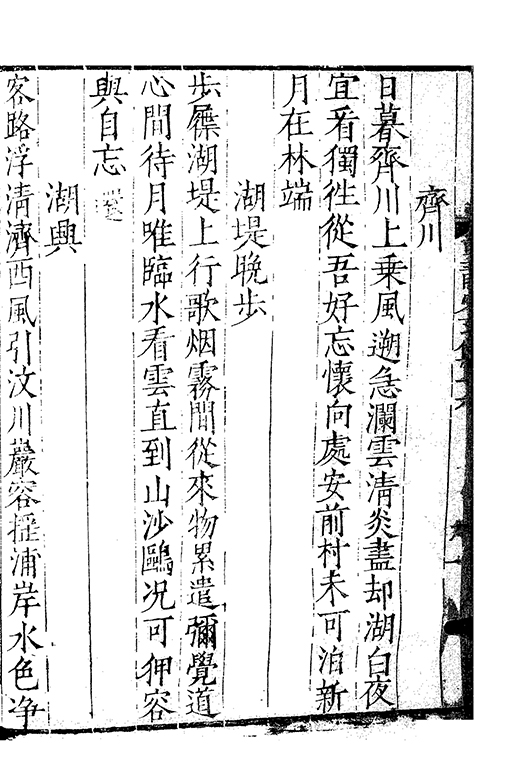 齊川
日暮齊川上乗風遡急瀾雲清炎盡却湖白夜
宜看獨徃從吾好忘懷向處安前村未可泊新
月在林端
湖堤晚歩
歩屧湖堤上行歌烟霧間從來物累遣彌覺道
心間待月唯臨水看雲直到山沙鷗况可狎容
與自忘還
湖興
客路浮清濟西風引汶川巖容揺浦岸水色净